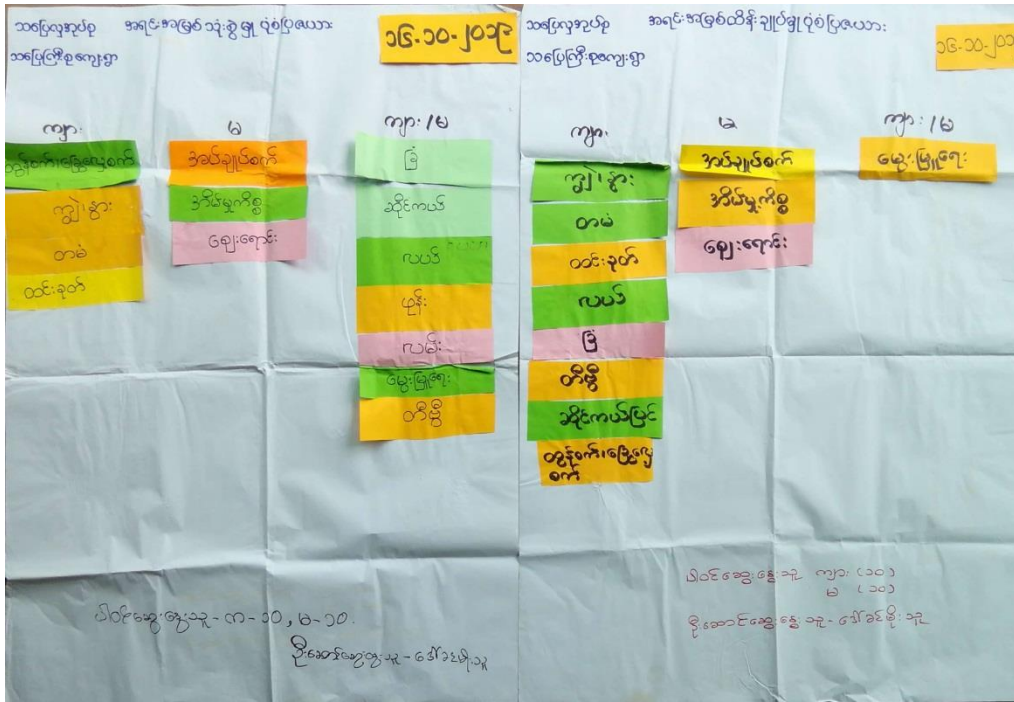 သပြေလှအုပ်စု အရင်းအမြစ်သုံးစွဲမှုပုံစံပြဇယား
သပြေကြီးစုကျေးရွာ
၁၆-၁၀-၂၀၁၉
ကျား
မ
ကျား/မ
ထွန်စက်၊ခြွေလှေ့စက်
ကျွဲ၊နွား
တမံ
ထင်းခုတ်
အပ်ချုပ်စက်
အိမ်မှုကိစ္စ
ဈေးရောင်း
ခြံ
ဆိုင်ကယ်
လယ်
ဖုန်း
လမ်း
မွေးမြူရေး
တီဗွီ
ပါဝင်ဆွေးနွေးသူ - ကာ - ၁၀, မ - ၁၀
ဦးဆောင်ဆွေးနွေးသူ - ဒေါ်ခင်မိုးသူ
သပြေလှအုပ်စု အရင်းအမြစ်ထိန်းချုပ်မှုပုံစံပြဇယား
သပြေကြီးစုကျေးရွာ
၁၆-၁၀-၂၀၁
ကျား
မ
ကျား/မ
ကျွဲ၊နွား
တမံ
ထင်းခုတ်
လယ်
ခြံ
တီဗွီ
ဆိုင်ကယ်ပြင်
ထွန်စက်၊ခြွေလှေ့
စက်
အပ်ချုပ်စက်
အိမ်မှုကိစ္စ
ဈေးရောင်း
မွေးမြူရေး
ပါဝင်ဆွေးနွေးသူ ကျား (၁၀)
မ (၁၀)
ဦးဆောင်ဆွေးနွေးသူ - ဒေါ်ခင်မိုးသူ